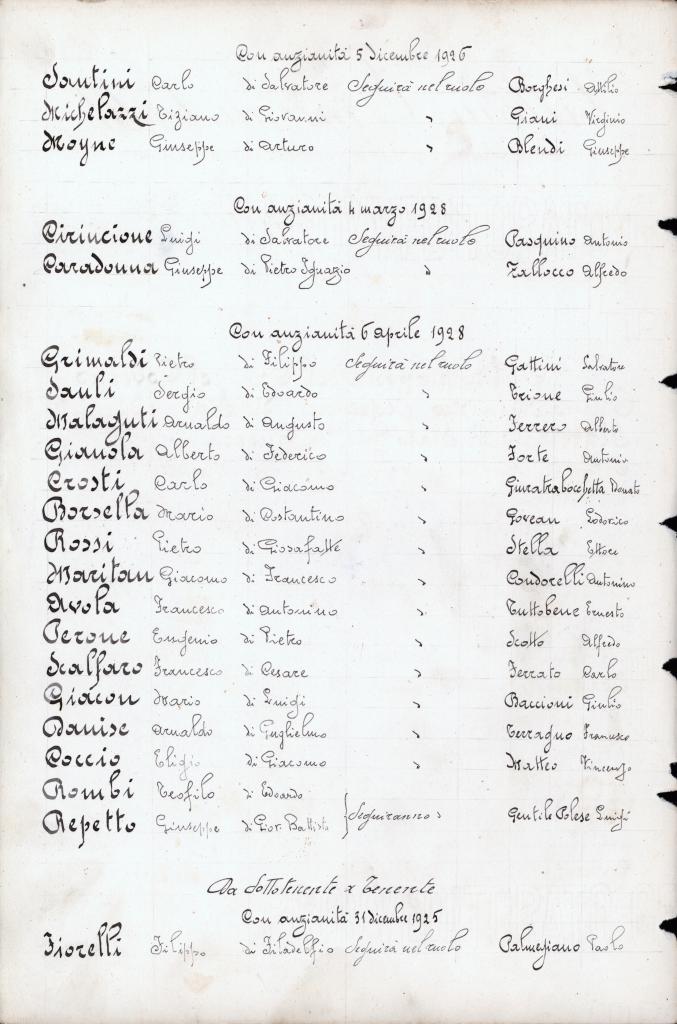 Con anzianità 5 dicembre 1926
Santini Carlo di Salvatore Seguirà nel ruolo Borghesi Attilio
Michelazzi Tiziano di Giovanni " Giani Virginio
Moyne Giuseppe di Arturo " Blendi Giuseppe
Con anzianità 4 marzo 1928
Cirincione Luigi di Salvatore Seguirà nel ruolo Pasquino Antonio
Caradonna Giuseppe di Pietro Ignazio " Zallocco Alfredo
Con anzianità 6 aprile 1928
Grimaldi Pietro di Filippo Seguirà nel ruolo Gattini Salvatore
Sauli Sergio di Edoardo " Trione Giulio
Malaguti Arnaldo di Augusto " Ferrero Alberto
Gianola Alberto di Federico " Forte Antonio
Crosti Carlo di Giacomo " Giuratrabocchetta Donato
Borsella Mario di Costantino " Govean Lodovico
Rossi Pietro di Giosafatte " Stella Ettore
Maritan Giacomo di Francesco " Condorelli Antonino
Avola Francesco di Antonino " Tuttobene Ernesto
Perone Eugenio di Pietro " Scotto Alfredo
Scalfaro Francesco di Cesare " Ferrato Carlo
Giacon Mario di Luigi " Baccioni Giulio
Danise Arnaldo di Guglielmo " Terragno Francesco
Coccio Eligio di Giacomo " Matteo Vincenzo
Rombi Teofilo di Edoardo
Repetto Giuseppe di Giov. Battista } Seguiranno " Gentile Polese Luigi
Da Sottotenente a Tenente
Con anzianità 31 dicembre 1925
Fiorelli Filippo di Filadelfio Seguirà nel ruolo Palmegiano Paolo